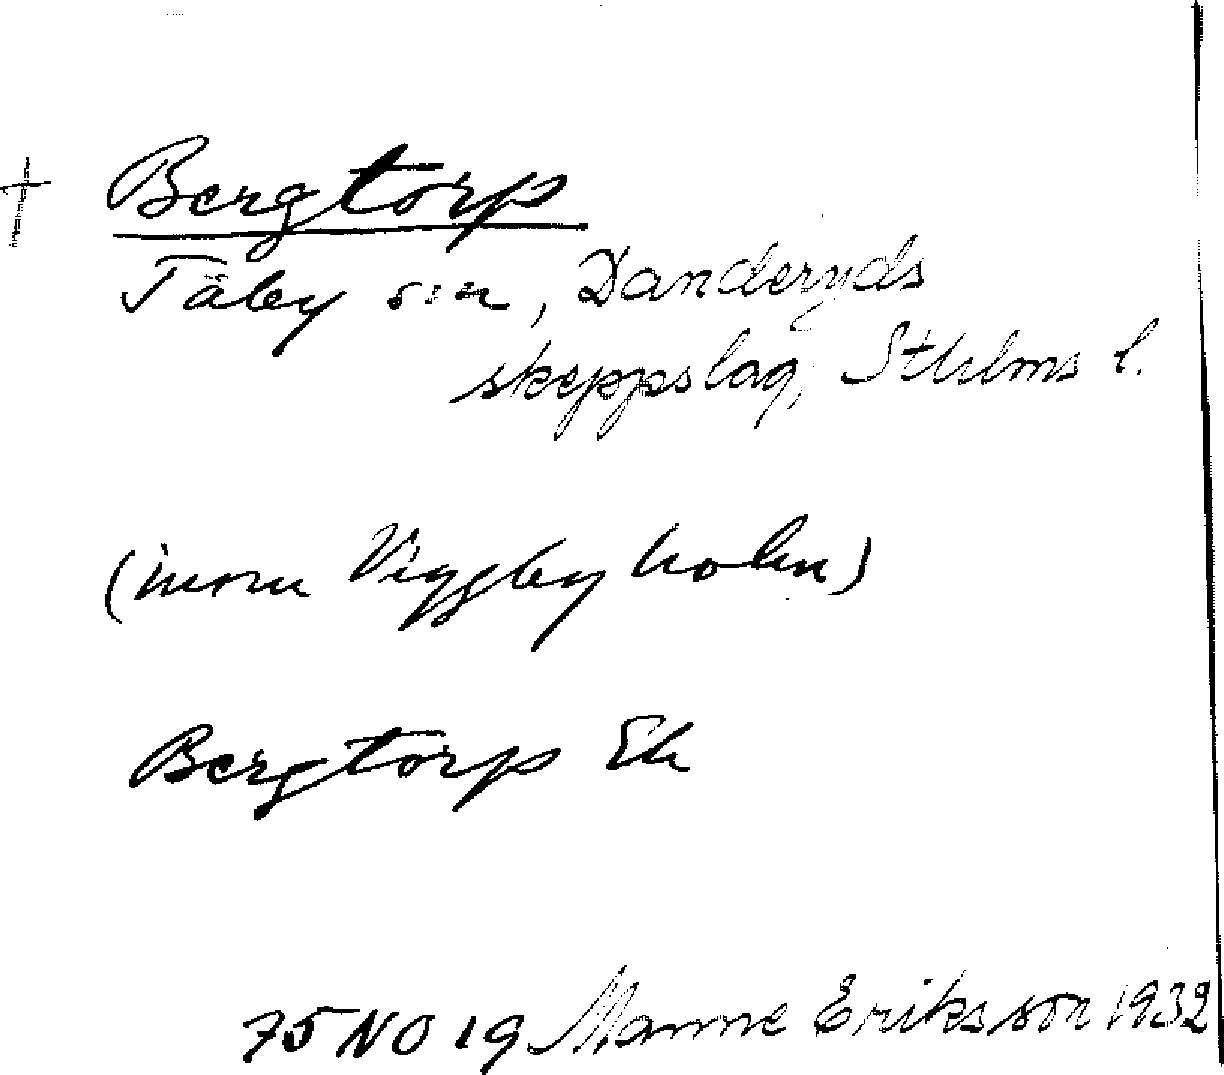 + Bergtorp
Täby sn, Danderyds
skeppslag, Sthlms l.
(inom Viggbyholm)
Bergtorp Ek
75 NO 19 Manne Eriksson 1932